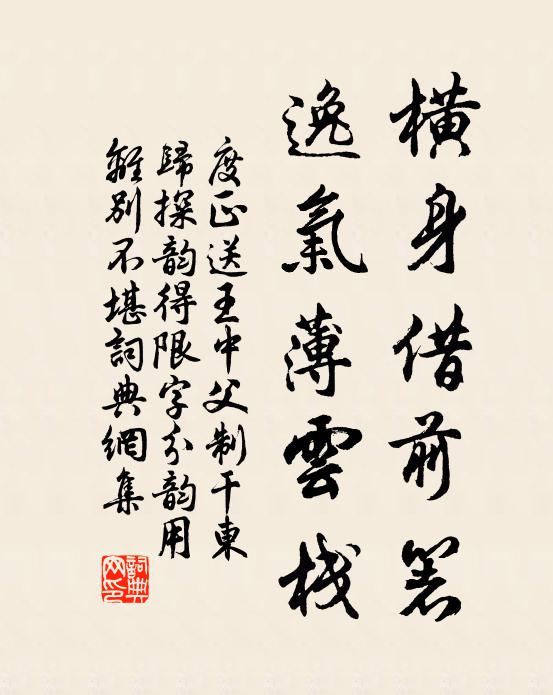 橫身借前箸
逸氣薄雲棧
度正送王中父制干東
歸探韵得限字分韵用
離別不堪詞典網集
詞典网印